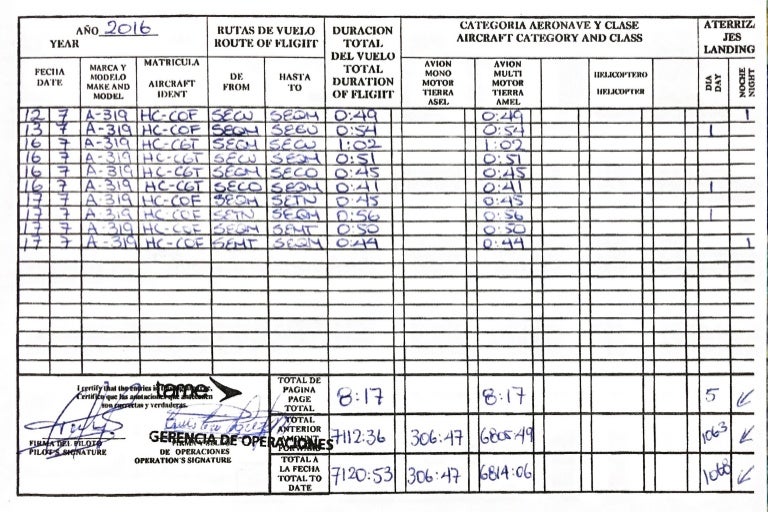 AÑO 2016
YEAR
RUTAS DE VUELO
ROUTE OF FLIGHT
DURACION
TOTAL
DEL VUELO
TOTAL
DURATION
OF FLIGHT
CATEGORIA AERONAVE Y CLASE
AIRCRAFT CATEGORY AND CLASS
ATERRIZA
JES
LANDING
FECHA
DATE
MARCA Y
MODELO
MAKE AND
MODEL
MATRICULA
AIRCRAFT
IDENT
DE
FROM
HASTA
TO
AVION
MONO
MOTOR
TIERRA
ASEL
AVION
MULTI
MOTOR
TIERRA
AMEL
HELICOPTERO
HELICOPTER
DIA
DAY
NOCHE
NIGHT
12 7 A-319 HC-COF SECU SEQM 0:49 0:49 1
13 7 A-319 HC-COF SEQM SECU 0:54 0:54 1
16 7 A-319 HC-CGT SEQM SECU 1:02 1:02
16 7 A-319 HC-CGT SECU SEQM 0:51 0:51
16 7 A-319 HC-CGT SEQM SECO 0:45 0:45
16 7 A-319 HC-CGT SECO SEQM 0:41 0:41 1
17 7 A-319 HC-COF SEQM SETN 0:45 0:45
17 7 A-319 HC-COF SETN SEQM 0:56 0:56 1
17 7 A-319 HC-COF SEQM SEMT 0:50 0:50
17 7 A-319 HC-COF SEMT SEQM 0:44 0:44 1
I certify that the entries in
Certifico que las anotaciones que anteceden
son correctas y verdaderas.
tame
FIRMA DEL PILOTO
PILOT'S SIGNATURE
GERENCIA DE OPERACIONES
DE OPERACIONES
OPERATION'S SIGNATURE
TOTAL DE
PAGINA
PAGE
TOTAL
8:17 8:17 5
TOTAL
ANTERIOR
AMOUNT
FORWARD
7112:36 306:47 6805:49 1063
TOTAL A
LA FECHA
TOTAL TO
DATE
7120:53 306:47 6814:06 1068